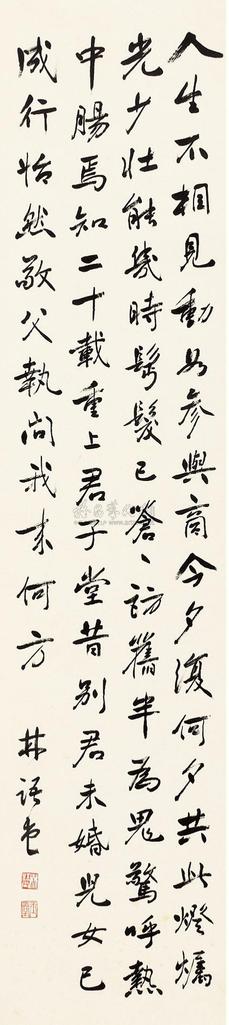 人生不相見動如參與商今夕復何夕共此燈燭
光少壯能幾時鬢髮已蒼蒼訪舊半為鬼驚呼熱
中腸焉知二十載重上君子堂昔別君未婚兒女已
成行怡然敬父執問我來何方
林語堂